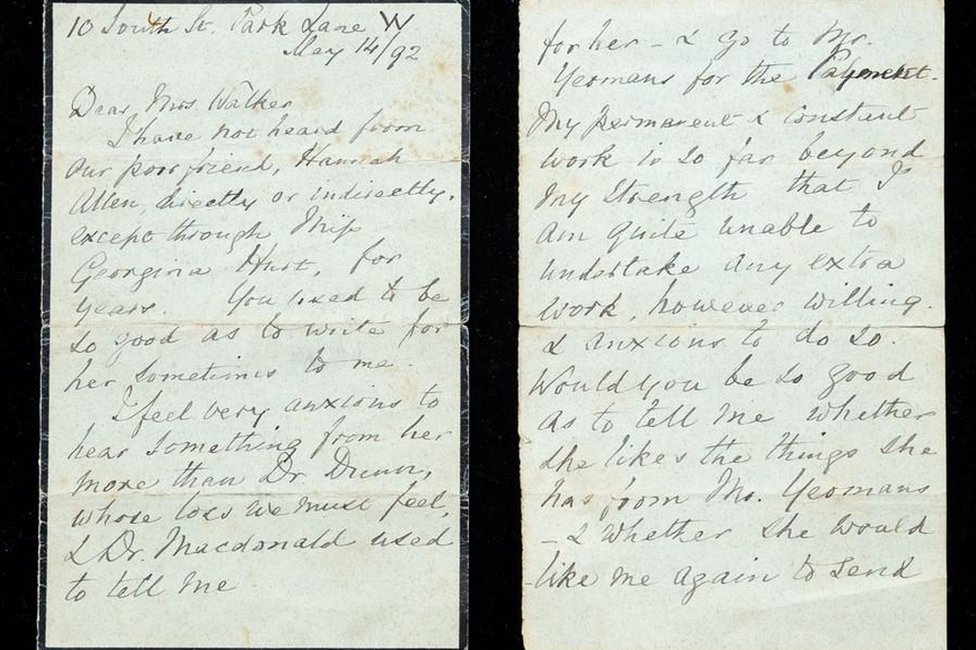 10 South St. Park Lane W
May 14/92
Dear Mrs. Walker
I have not heard from
our poor friend, Hannah
Allen, directly or indirectly,
except through Miss
Georgina Hurt, for
years. You used to be
so good as to write for
her sometimes to me.
I feel very anxious to
hear something from her
more than Dr. Dunn,
whose loss we must feel,
& Dr. Macdonald used
to tell me
for her - & go to Mr.
Yeomans for the Payment.
My permanent & constant
work is so far beyond
my strength that I
am quite unable to
undertake any extra
work, however willing
& anxious to do so.
Would you be so good
as to tell me whether
she likes the things she
has from Mr. Yeomans
- & whether she would
like me again to send